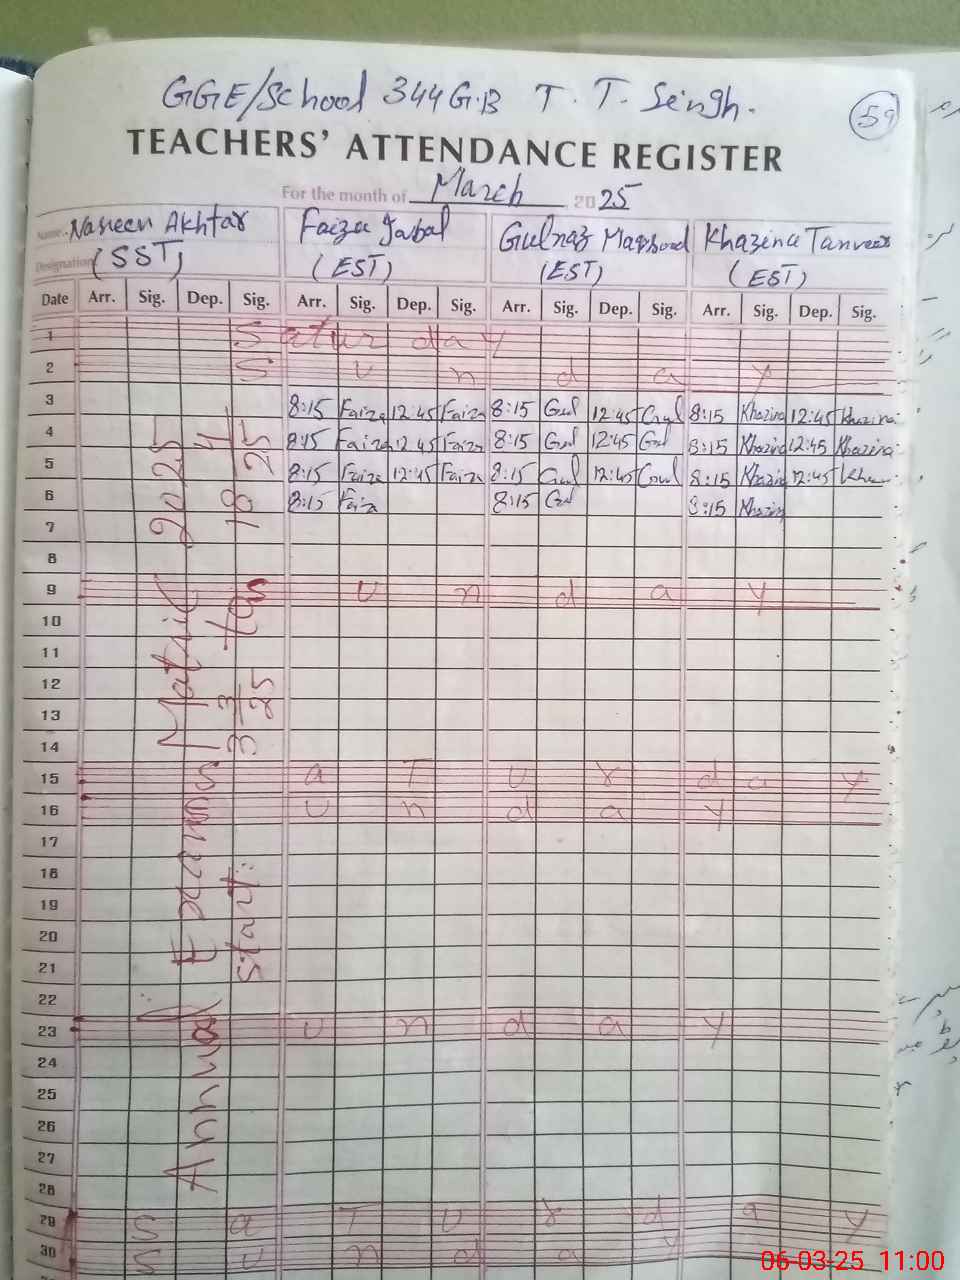 GGE/School 344 G.B T. T. Singh.
59
TEACHERS' ATTENDANCE REGISTER
For the month of March 2025
Name. Nasreen Akhtar Faiza Iqbal Gulnaz Maqsood Khazina Tanveer
Designation (SST) (EST) (EST) (EST)
Date Arr. Sig. Dep. Sig. Arr. Sig. Dep. Sig. Arr. Sig. Dep. Sig. Arr. Sig. Dep. Sig.
1 Saturday
2 Sunday
3 8:15 Faiza 12:45 Faiza 8:15 Gul 12:45 Gul 8:15 Khazina 12:45 Khazina
4 8:15 Faiza 12:45 Faiza 8:15 Gul 12:45 Gul 8:15 Khazina 12:45 Khazina
5 8:15 Faiza 12:45 Faiza 8:15 Gul 12:45 Gul 8:15 Khazina 12:45
6 8:15 Faiza 8:15 Gul 8:15 Khazina
7
8
9 Sunday
10
11
12
13
14
15 SaTurday
16 Sunday
17
18
19
20
21
22
23 Sunday
24
25
26
27
28
29 SaTurday
30 Sunday
Annual Exams Matric 2025
start: 3 3/25 to 18 4/25
06-03-25 11:00